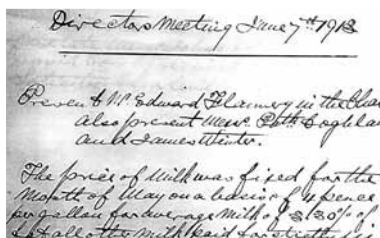 Directors Meeting June 7th 1913
Present Mr Edward Flannery in the Chair
also present Messrs Patk Coghlan
and James Winter.
The price of Milk was fixed for the
Month of May on a basis of 4 pence
per gallon for average milk of 3.30% of
all other milk paid for strictly